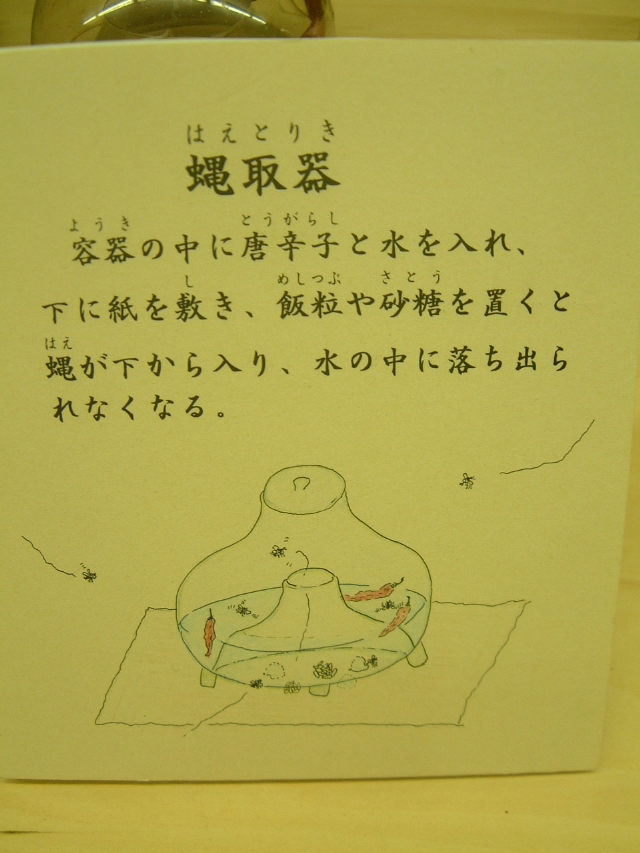 はえとりき
蝿取器
ようき とうがらし
容器の中に唐辛子と水を入れ、
し めしつぶ さとう
下に紙を敷き、飯粒や砂糖を置くと
はえ
蝿が下から入り、水の中に落ち出ら
れなくなる。